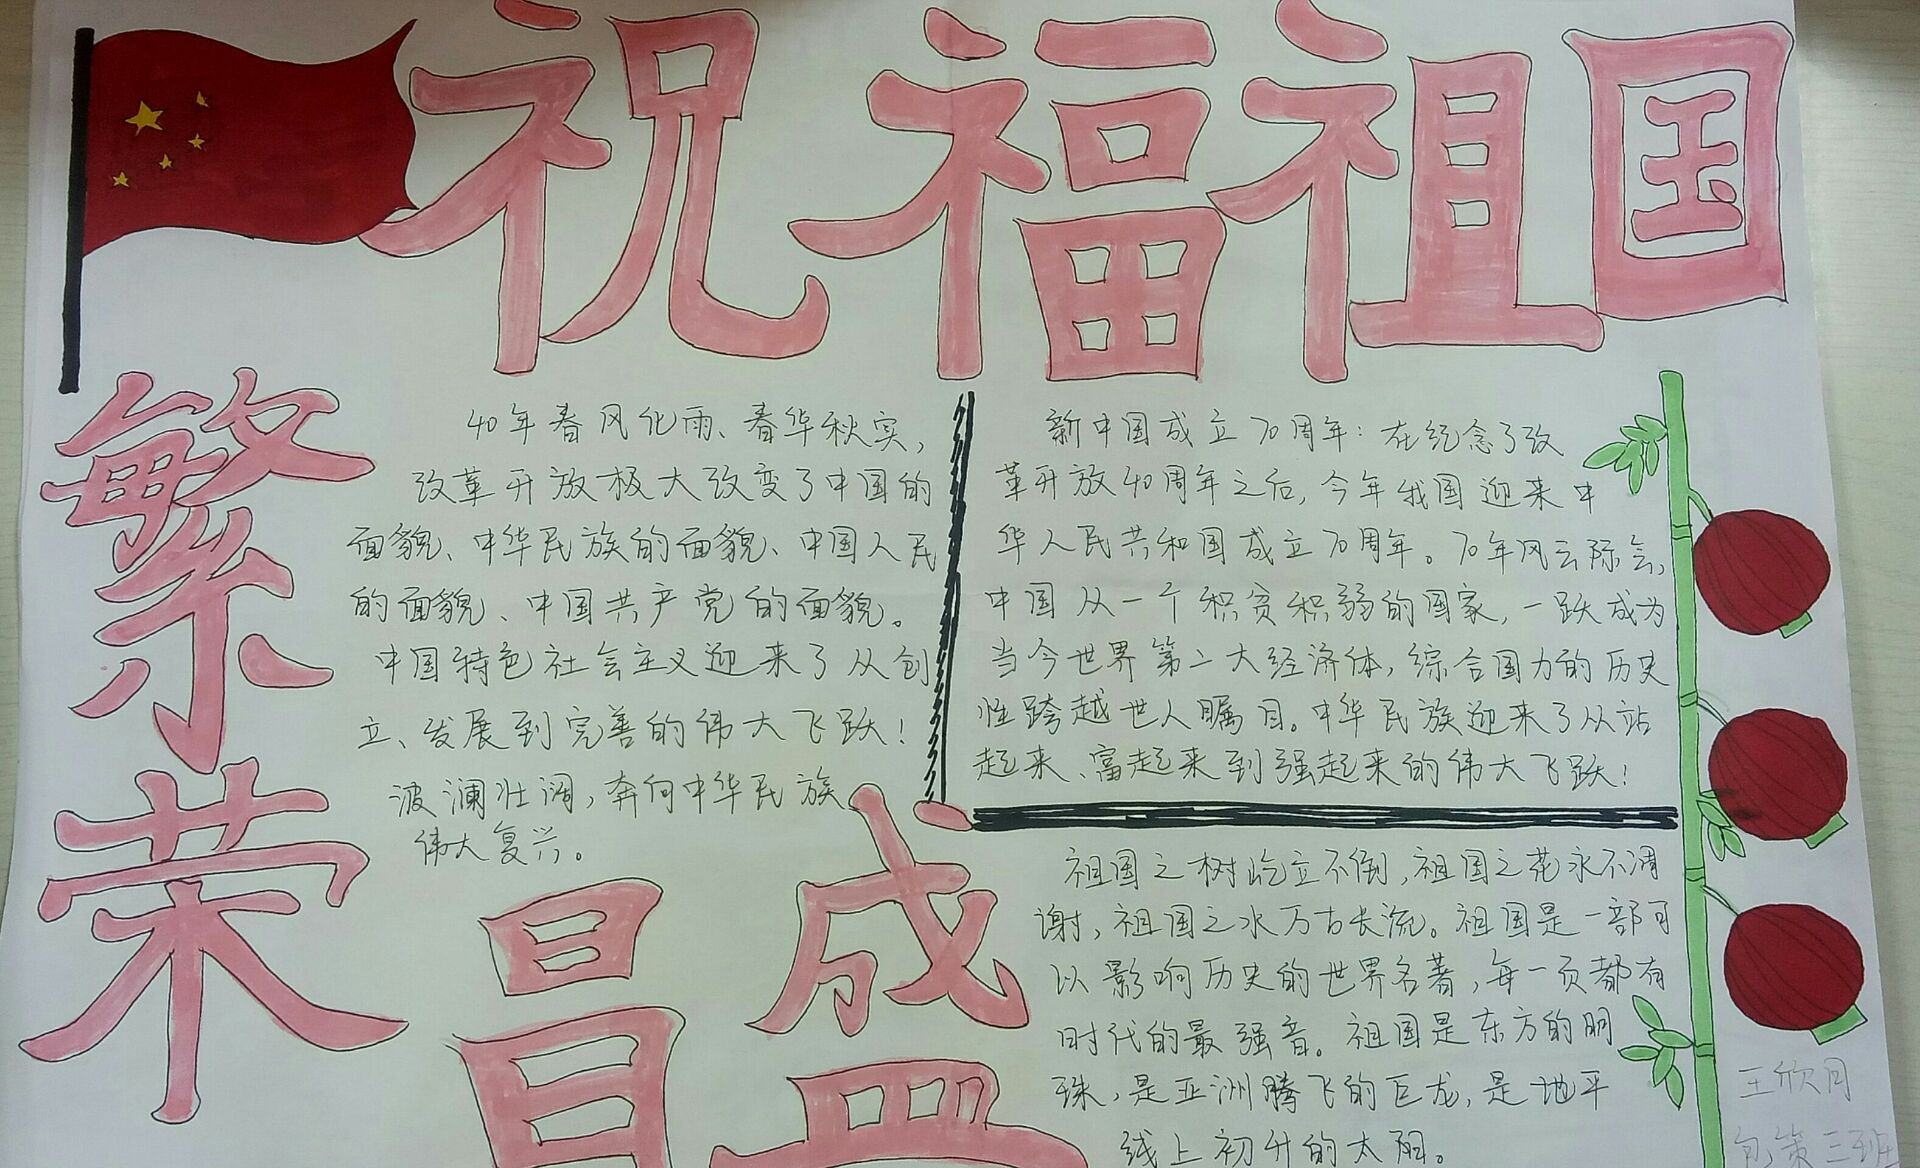 祝福祖国
繁荣
昌盛
40年春风化雨、春华秋实，
改革开放极大改变了中国的
面貌、中华民族的面貌、中国人民
的面貌、中国共产党的面貌。
中国特色社会主义迎来了从创
立、发展到完善的伟大飞跃！
波澜壮阔，奔向中华民族
伟大复兴。
新中国成立70周年：在纪念了改
革开放40周年之后，今年我国迎来中
华人民共和国成立70周年。70年风云际会，
中国从一个积贫积弱的国家，一跃成为
当今世界第二大经济体，综合国力的历史
性跨越世人瞩目。中华民族迎来了从站
起来、富起来到强起来的伟大飞跃！
祖国之树屹立不倒，祖国之花永不凋
谢，祖国之水万古长流。祖国是一部可
以影响历史的世界名著，每一页都有
时代的最强音。祖国是东方的明
珠，是亚洲腾飞的巨龙，是地平
线上初升的太阳。
王欣月
第三班